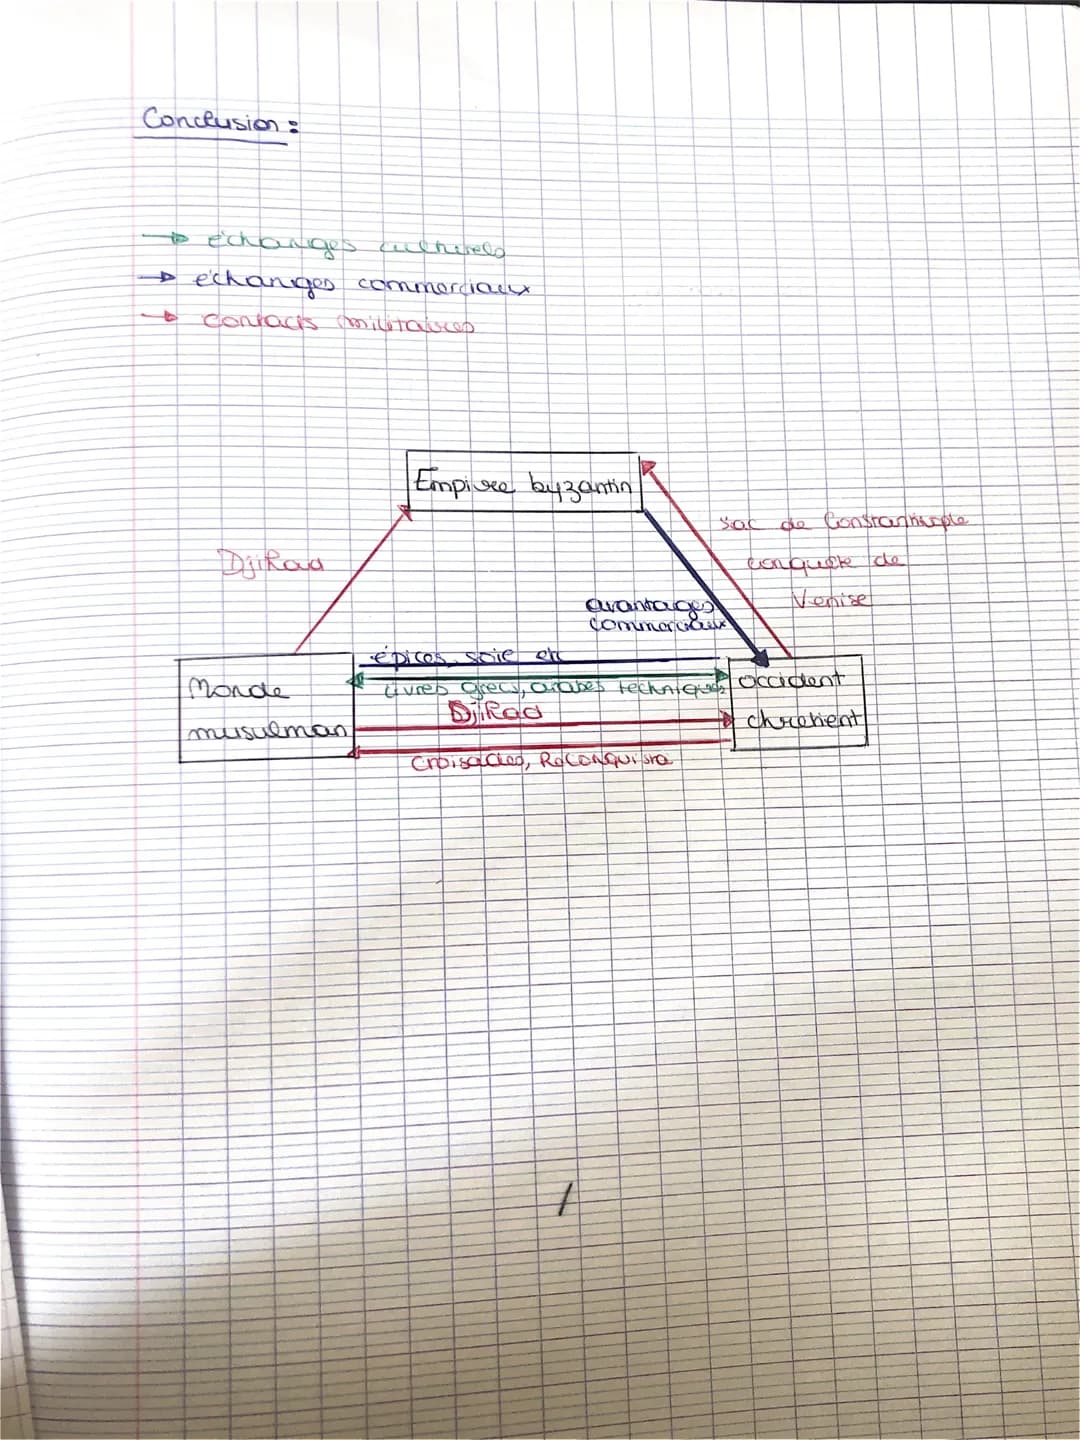 Conclusion :
→ échanges culturels
→ échanges commerciaux
→ contacts militaires
Empire byzantin
sac de Constantinople
conquête de
Venise
Djihad
avantages
commerciaux
épices, soie etc
livres grecs, arabes techniques
Djihad
Croisades, Reconquista
Monde
musulman
occident
chrétient
/